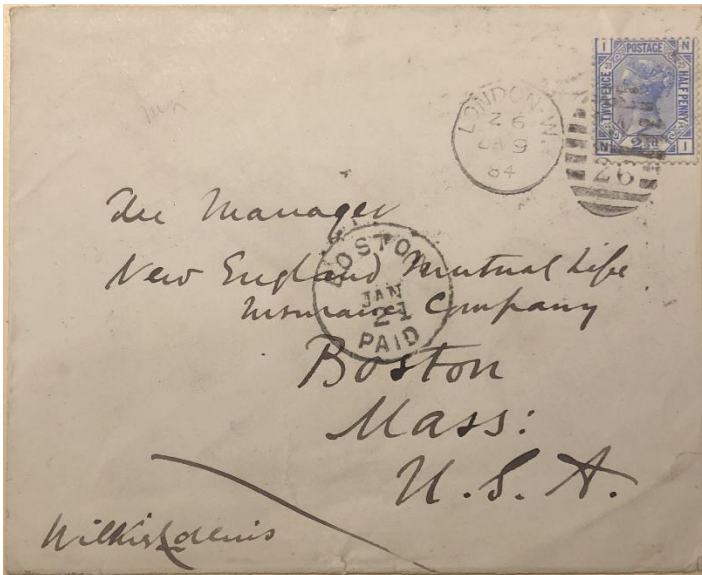 I POSTAGE N
TWO PENCE HALF PENNY
N 2½d I
LONDON · W.
Z 6
JA 9
84
26
The Manager
New England Mutual Life
Insurance Company
BOSTON
JAN
21
PAID
Boston
Mass:
U.S.A.
Wilkie Collins